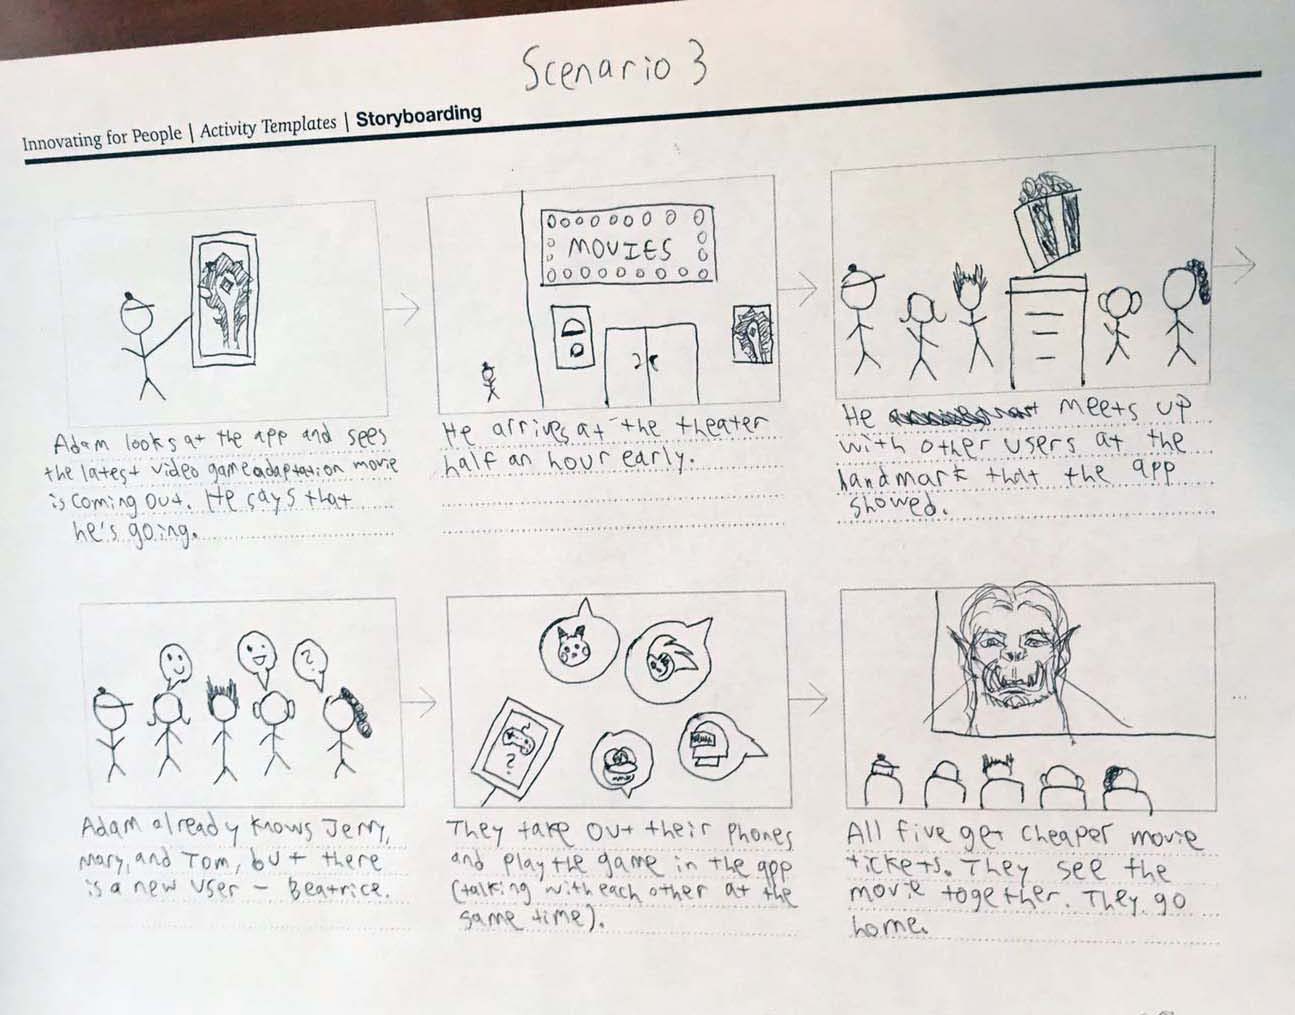 Scenario 3
Innovating for People | Activity Templates | Storyboarding
MOVIES
Adam looks at the app and sees
the latest video game adaptation movie
is coming out. He says that
he's going.
He arrives at the theater
half an hour early.
He meets up
with other users at the
landmark that the app
showed.
?
Adam already knows Jerry,
Mary, and Tom, but there
is a new user - Beatrice.
?
They take out their phones
and play the game in the app
(talking with each other at the
same time).
All five get cheaper movie
tickets. They see the
movie together. They go
home.